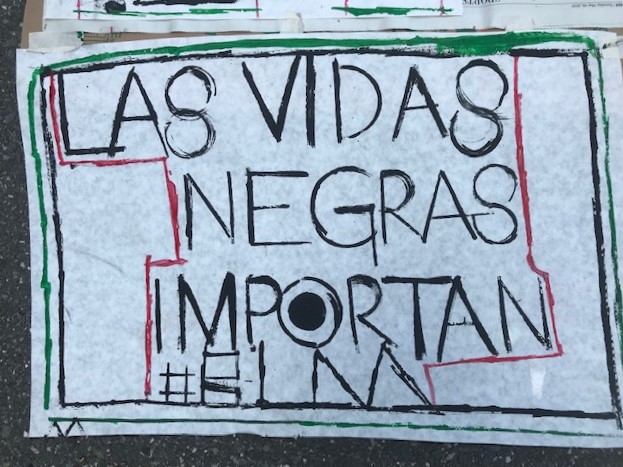 LAS VIDAS
NEGRAS
IMPORTAN
#BLM